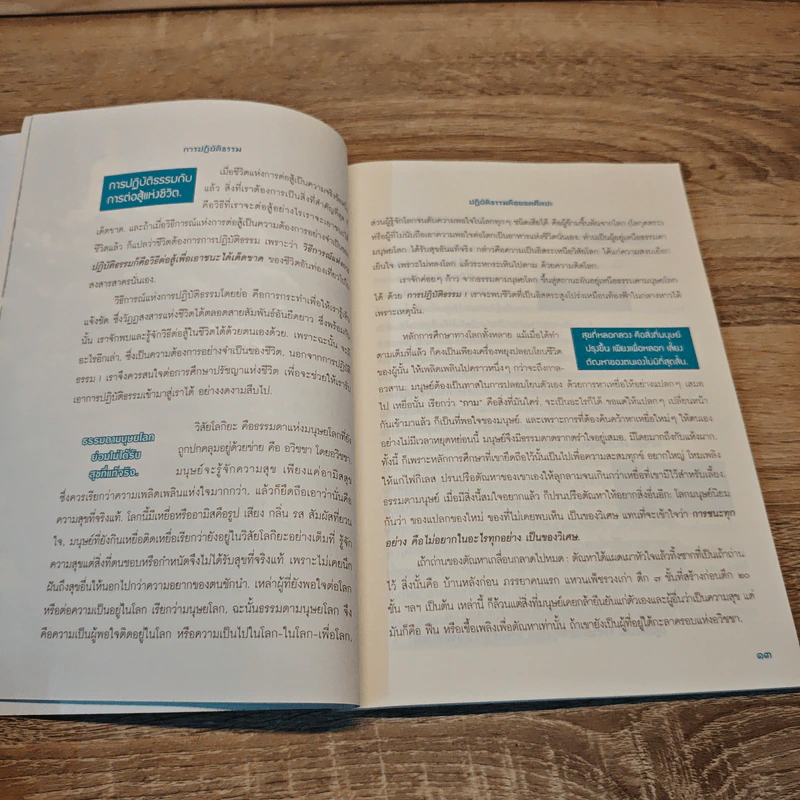 การปฏิบัติธรรม
การปฏิบัติธรรมกับ
การต่อสู้แห่งชีวิต.
เมื่อชีวิตแห่งการต่อสู้เป็นความจริงขึ้นมา
แล้ว สิ่งที่เราต้องการเป็นสิ่งที่สำคัญที่สุด
คือวิธีที่เราจะต่อสู้อย่างไรเราจะเอาชนะได้
เด็ดขาด. และถ้าเมื่อวิธีการณ์แห่งการต่อสู้เป็นความต้องการอย่างจำเป็นของ
ชีวิตแล้ว ก็แปลว่าชีวิตต้องการการปฏิบัติธรรม เพราะว่า วิธีการณ์แห่งการ
ปฏิบัติธรรมก็คือวิธีต่อสู้เพื่อเอาชนะได้เด็ดขาด ของชีวิตอันท่องเที่ยวไปใน
สงสารสาครนั่นเอง.
วิธีการณ์แห่งการปฏิบัติธรรมโดยย่อ คือการกระทำเพื่อให้เรารู้เห็น
แจ้งชัด ซึ่งวัฏฏสงสารแห่งชีวิตได้ตลอดสายสัมพันธ์อันยืดยาว ซึ่งพร้อมกัน
นั้น เราจักพบและรู้จักวิธีต่อสู้ในชีวิตได้ด้วยตนเองด้วย. เพราะฉะนั้น จะมี
อะไรอีกเล่า, ซึ่งเป็นความต้องการอย่างจำเป็นของชีวิต, นอกจากการปฏิบัติ
ธรรม ! เราจึงควรสนใจต่อการศึกษาปรัชญาแห่งชีวิต เพื่อจะช่วยให้เรารับ
เอาการปฏิบัติธรรมเข้ามาสู่เราได้ อย่างงดงามสืบไป.
ธรรมดามนุษย์โลก
ย่อมไม่ได้รับ
สุขที่แท้จริง.
วิสัยโลกิยะ คือธรรมดาแห่งมนุษย์โลกที่ยัง
ถูกปกคลุมอยู่ด้วยข่าย คือ อวิชชา โดยอวิชชา,
มนุษย์จะรู้จักความสุข เพียงแค่อามิสสุข
ซึ่งควรเรียกว่าความเพลิดเพลินแห่งใจมากกว่า, แล้วก็ยึดถือเอาว่านั่นคือ
ความสุขที่จริงแท้. โลกนี้มีเหยื่อหรืออามิสคือรูป เสียง กลิ่น รส สัมผัสที่ยวน
ใจ, มนุษย์ที่ยังกินเหยื่อติดเหยื่อเรียกว่ายังอยู่ในวิสัยโลกิยะอย่างเต็มที่ รู้จัก
ความสุขแต่สิ่งที่ตนชอบหรือกำหนัดจึงไม่ได้รับสุขที่จริงแท้ เพราะไม่เคยนึก
ฝันถึงสุขอื่นให้นอกไปกว่าความอยากของตนชักนำ. เหล่าผู้ที่ยังพอใจต่อโลก
หรือต่อความเป็นอยู่ในโลก เรียกว่ามนุษย์โลก, ฉะนั้นธรรมดามนุษย์โลก จึง
คือความเป็นผู้พอใจติดอยู่ในโลก หรือความเป็นไปในโลก-ในโลก-เพื่อโลก,
ปฏิบัติธรรมคือยอดศิลปะ
ส่วนผู้รู้จักโลกจนดับความพอใจในโลกทุกๆ ชนิดเสียได้ คือผู้ข้ามขึ้นพ้นจากโลก (โลกุตตระ)
หรือผู้ที่ไม่นับถือเอาความพอใจต่อโลกเป็นอาหารแห่งชีวิตนั่นเอง. ท่านเป็นผู้อยู่เหนือธรรมดา
มนุษย์โลก ได้รับสุขอันแท้จริง กล่าวคือความเป็นอิสระเหนือวิสัยโลก ได้แก่ความสงบเยือก
เย็นใจ เพราะไม่หลงโลก แล้วระหกระเหินไปตาม ความคิดโลก.
เราจักค่อยๆ ก้าว จากธรรมดามนุษย์โลก ขึ้นสู่สถานะอันอยู่เหนือธรรมดามนุษย์โลก
ได้ ด้วย การปฏิบัติธรรม ! เราจะพบชีวิตที่เป็นอิสระสูงโปร่งเหมือนท้องฟ้าในกลางหาวได้
เพราะเหตุนั้น.
สุขที่หลอกลวง คือสิ่งที่มนุษย์
ปรุงขึ้น เพียงเพื่อหลอก เลี้ยง
ตัณหาของตนเองไม่มีที่สุดสิ้น.
หลักการศึกษาทางโลกทั้งหลาย แม้เมื่อได้ทำ
ตามเต็มที่แล้ว ก็คงเป็นเพียงเครื่องพยุงปลอบโยนชีวิต
ของผู้นั้น ให้เพลิดเพลินไปคราวหนึ่งๆ กว่าจะถึงกาล-
อวสาน; มนุษย์ต้องเป็นทาสในการปลอบโยนตัวเอง ด้วยการหาเหยื่อให้อย่างแปลกๆ เสมอ
ไป เหยื่อนั้น เรียกว่า "กาม" คือสิ่งที่มันใคร่, จะเป็นอะไรก็ได้ ขอแต่ให้แปลกๆ เปลี่ยนหน้า
กันเข้ามาแล้ว ก็เป็นที่พอใจของมนุษย์. และเพราะการที่ต้องค้นคว้าหาเหยื่อใหม่ๆ ให้ตนเอง
อย่างไม่มีเวลาหยุดหย่อนนี้ มนุษย์จึงมีธรรมดาตรากตรำอยู่เสมอ, มิโดยมากถึงกับแห้งผาก.
ทั้งนี้ ก็เพราะหลักการศึกษาที่เขายึดถือไว้นั้นเป็นไปเพื่อความสะสมทุกข์ อยากใหญ่ โหมเพลิง
ให้แก่ไฟกิเลส ปรนปรือตัณหาของเขาเองให้ลุกลามจนเกินกว่าเหยื่อที่เขามีไว้สำหรับเลี้ยง.
ธรรมดามนุษย์ เมื่อมีสิ่งนี้สมใจอยากแล้ว ก็ปรนปรือตัณหาให้อยากสิ่งอื่นอีก; โลกมนุษย์นิยม
กันว่า ของแปลกของใหม่ ของที่ไม่เคยพบเห็น เป็นของวิเศษ แทนที่จะเข้าใจว่า การชนะทุก
อย่าง คือไม่อยากในอะไรทุกอย่าง เป็นของวิเศษ.
เถ้าถ่านของตัณหาเกลื่อนกลาดไปหมด : ตัณหาได้แผดเผาหัวใจแล้วทิ้งซากที่เป็นเถ้าถ่าน
ไว้ สิ่งนั้นคือ บ้านหลังก่อน ภรรยาคนแรก แหวนเพ็ชรวงเก่า ตึก ๓ ชั้นที่สร้างก่อนตึก ๒๐
ชั้น ฯลฯ เป็นต้น เหล่านี้ ก็ล้วนแต่สิ่งที่มนุษย์เคยกล้ายืนยันแก่ตัวเองและผู้อื่นว่าเป็นความสุข แต่
มันก็คือ ฟืน หรือเชื้อเพลิงเพื่อตัณหาเท่านั้น ถ้าเขายังเป็นผู้ที่อยู่ใต้กะลาครอบแห่งอวิชชา.
๑๓